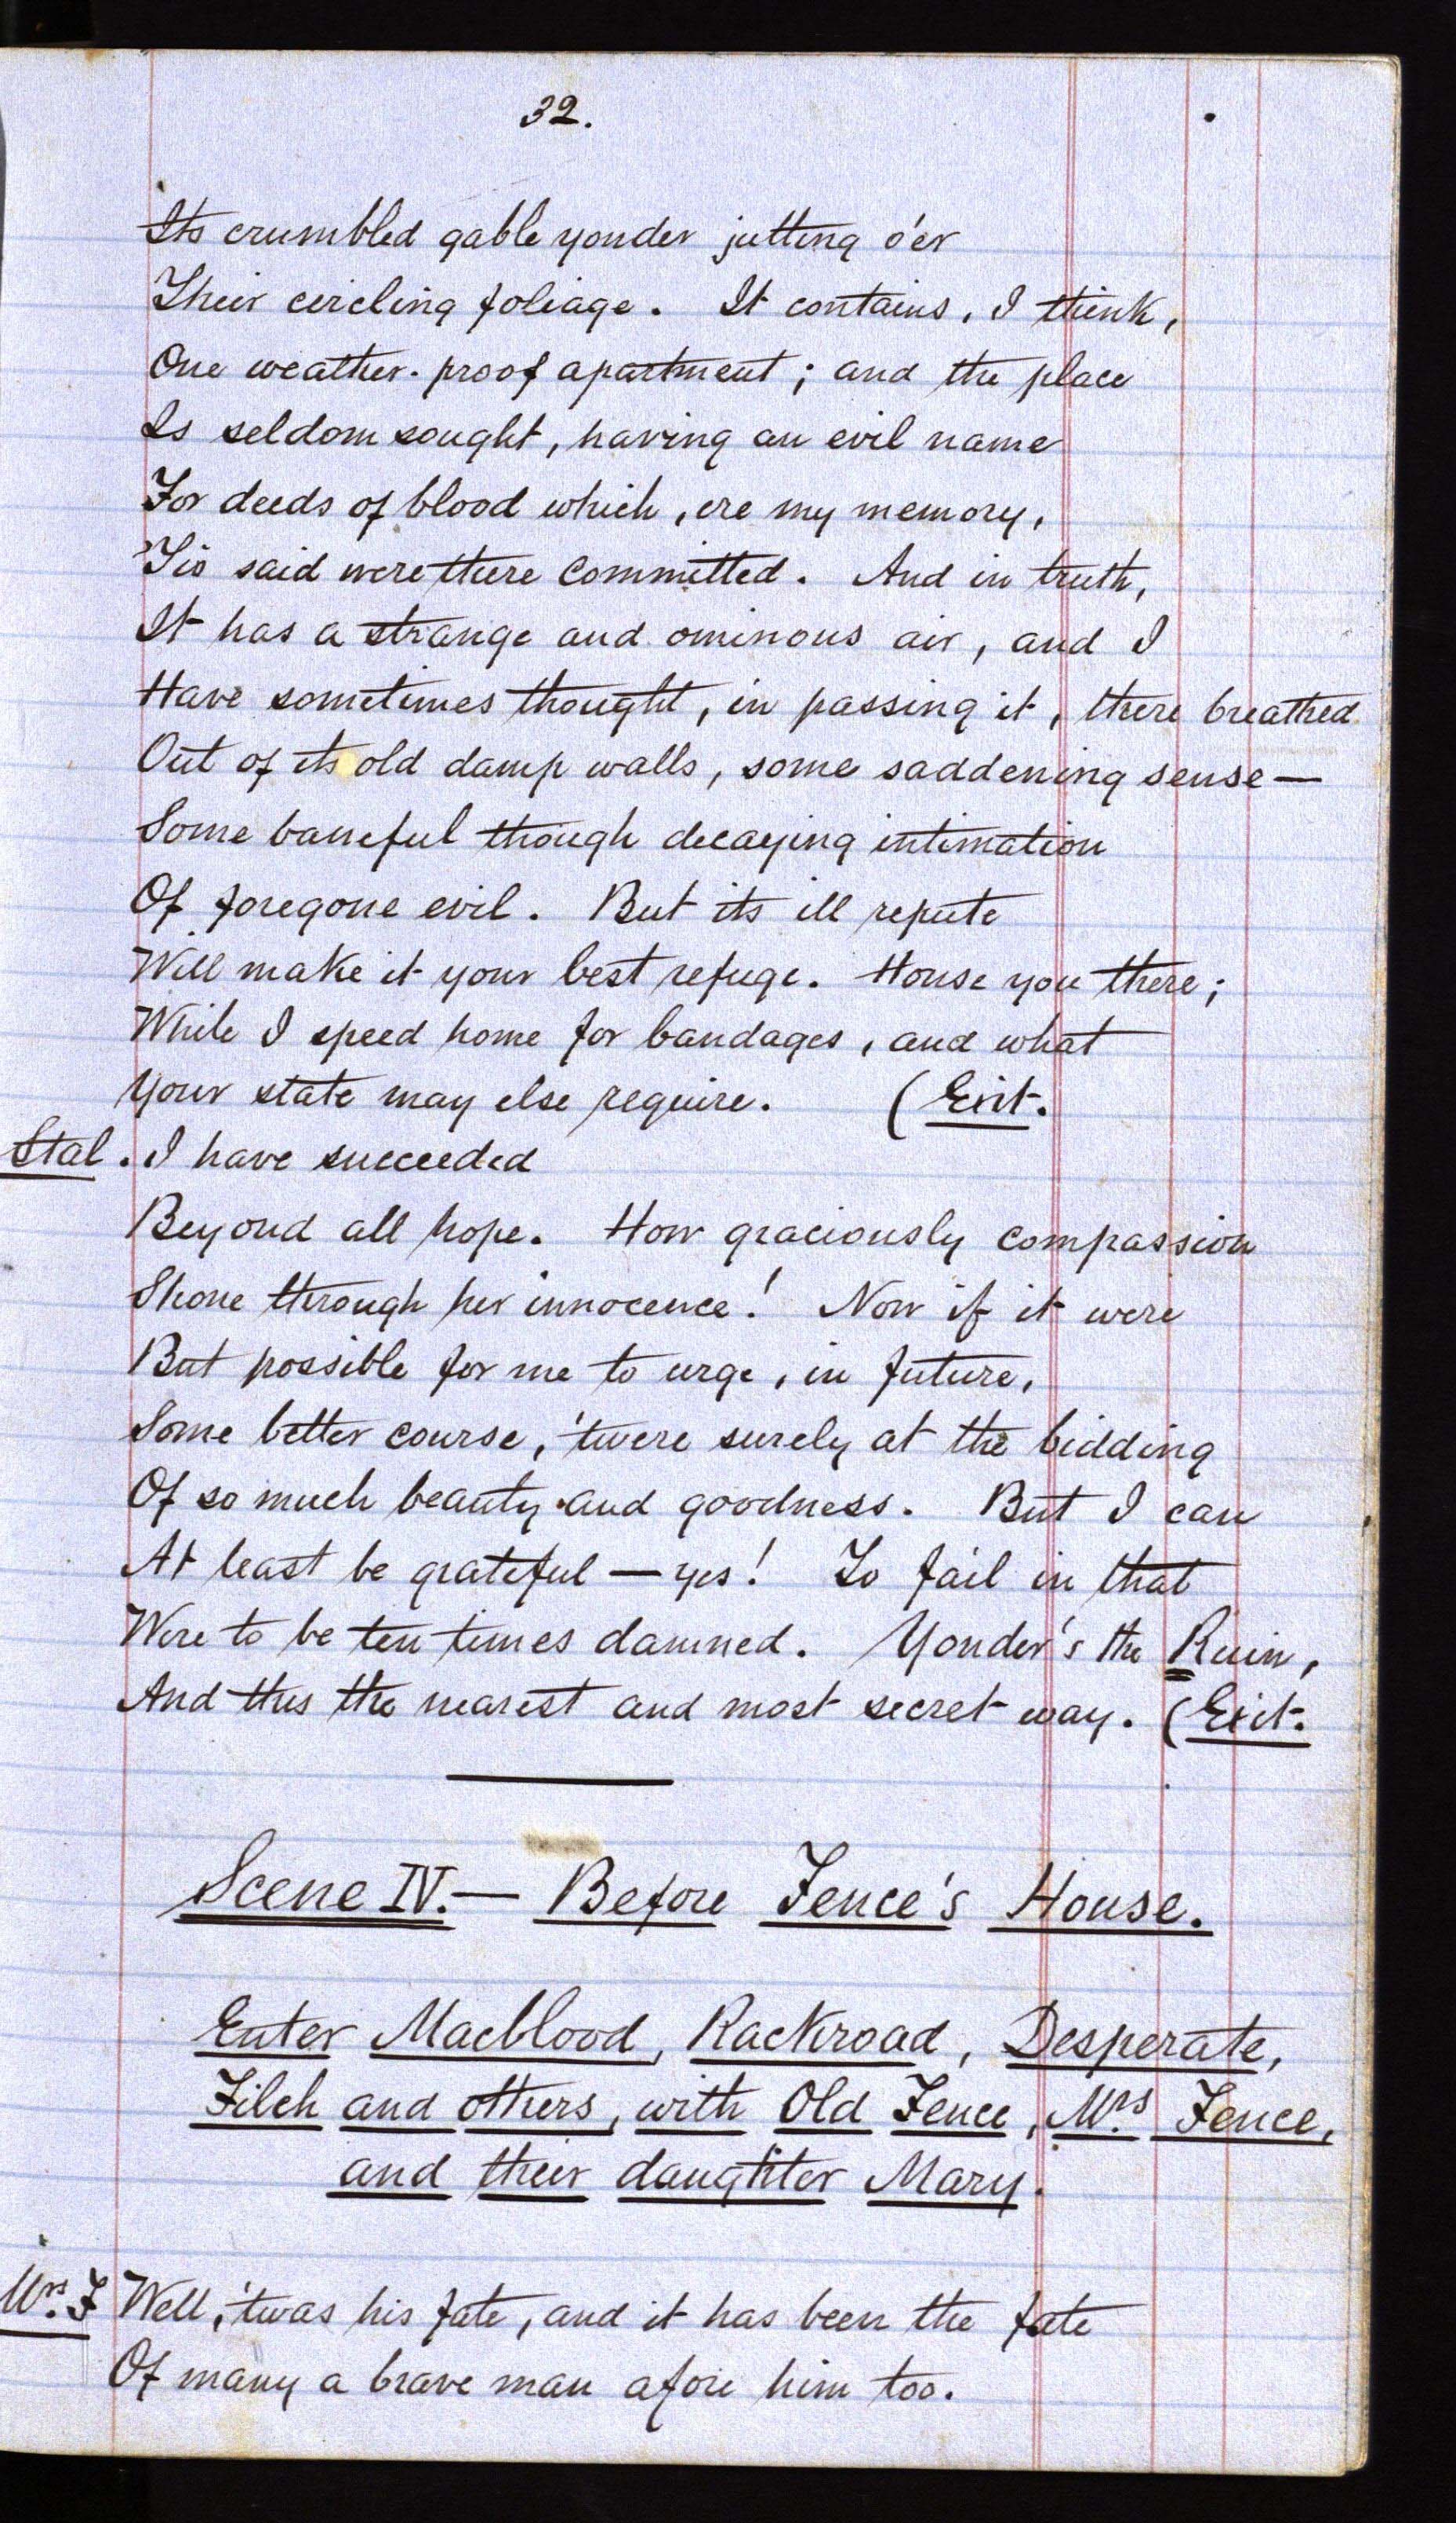 32.
Its crumbled gable yonder jutting o'er
Their circling foliage. It contains, I think,
One weather-proof apartment; and the place
Is seldom sought, having an evil name
For deeds of blood which, ere my memory,
'Tis said were there committed. And in truth,
It has a strange and ominous air, and I
Have sometimes thought, in passing it, there breathed
Out of its old damp walls, some saddening sense—
Some baneful though decaying intimation
Of foregone evil. But its ill repute
Will make it your best refuge. House you there;
While I speed home for bandages, and what
Your state may else require. (Exit.
Stal. I have succeeded
Beyond all hope. How graciously compassion
Shone through her innocence! Now if it were
But possible for me to urge, in future,
Some better course, 'twere surely at the bidding
Of so much beauty and goodness. But I can
At least be grateful—yes! To fail in that
Were to be ten times damned. Yonder's the Ruin,
And this the nearest and most secret way. (Exit.
Scene IV.— Before Fence's House.
Enter Macblood, Rackroad, Desperate,
Filch and others, with Old Fence, Mrs. Fence,
and their daughter Mary.
Mrs. F Well, 'twas his fate, and it has been the fate
Of many a brave man afore him too.